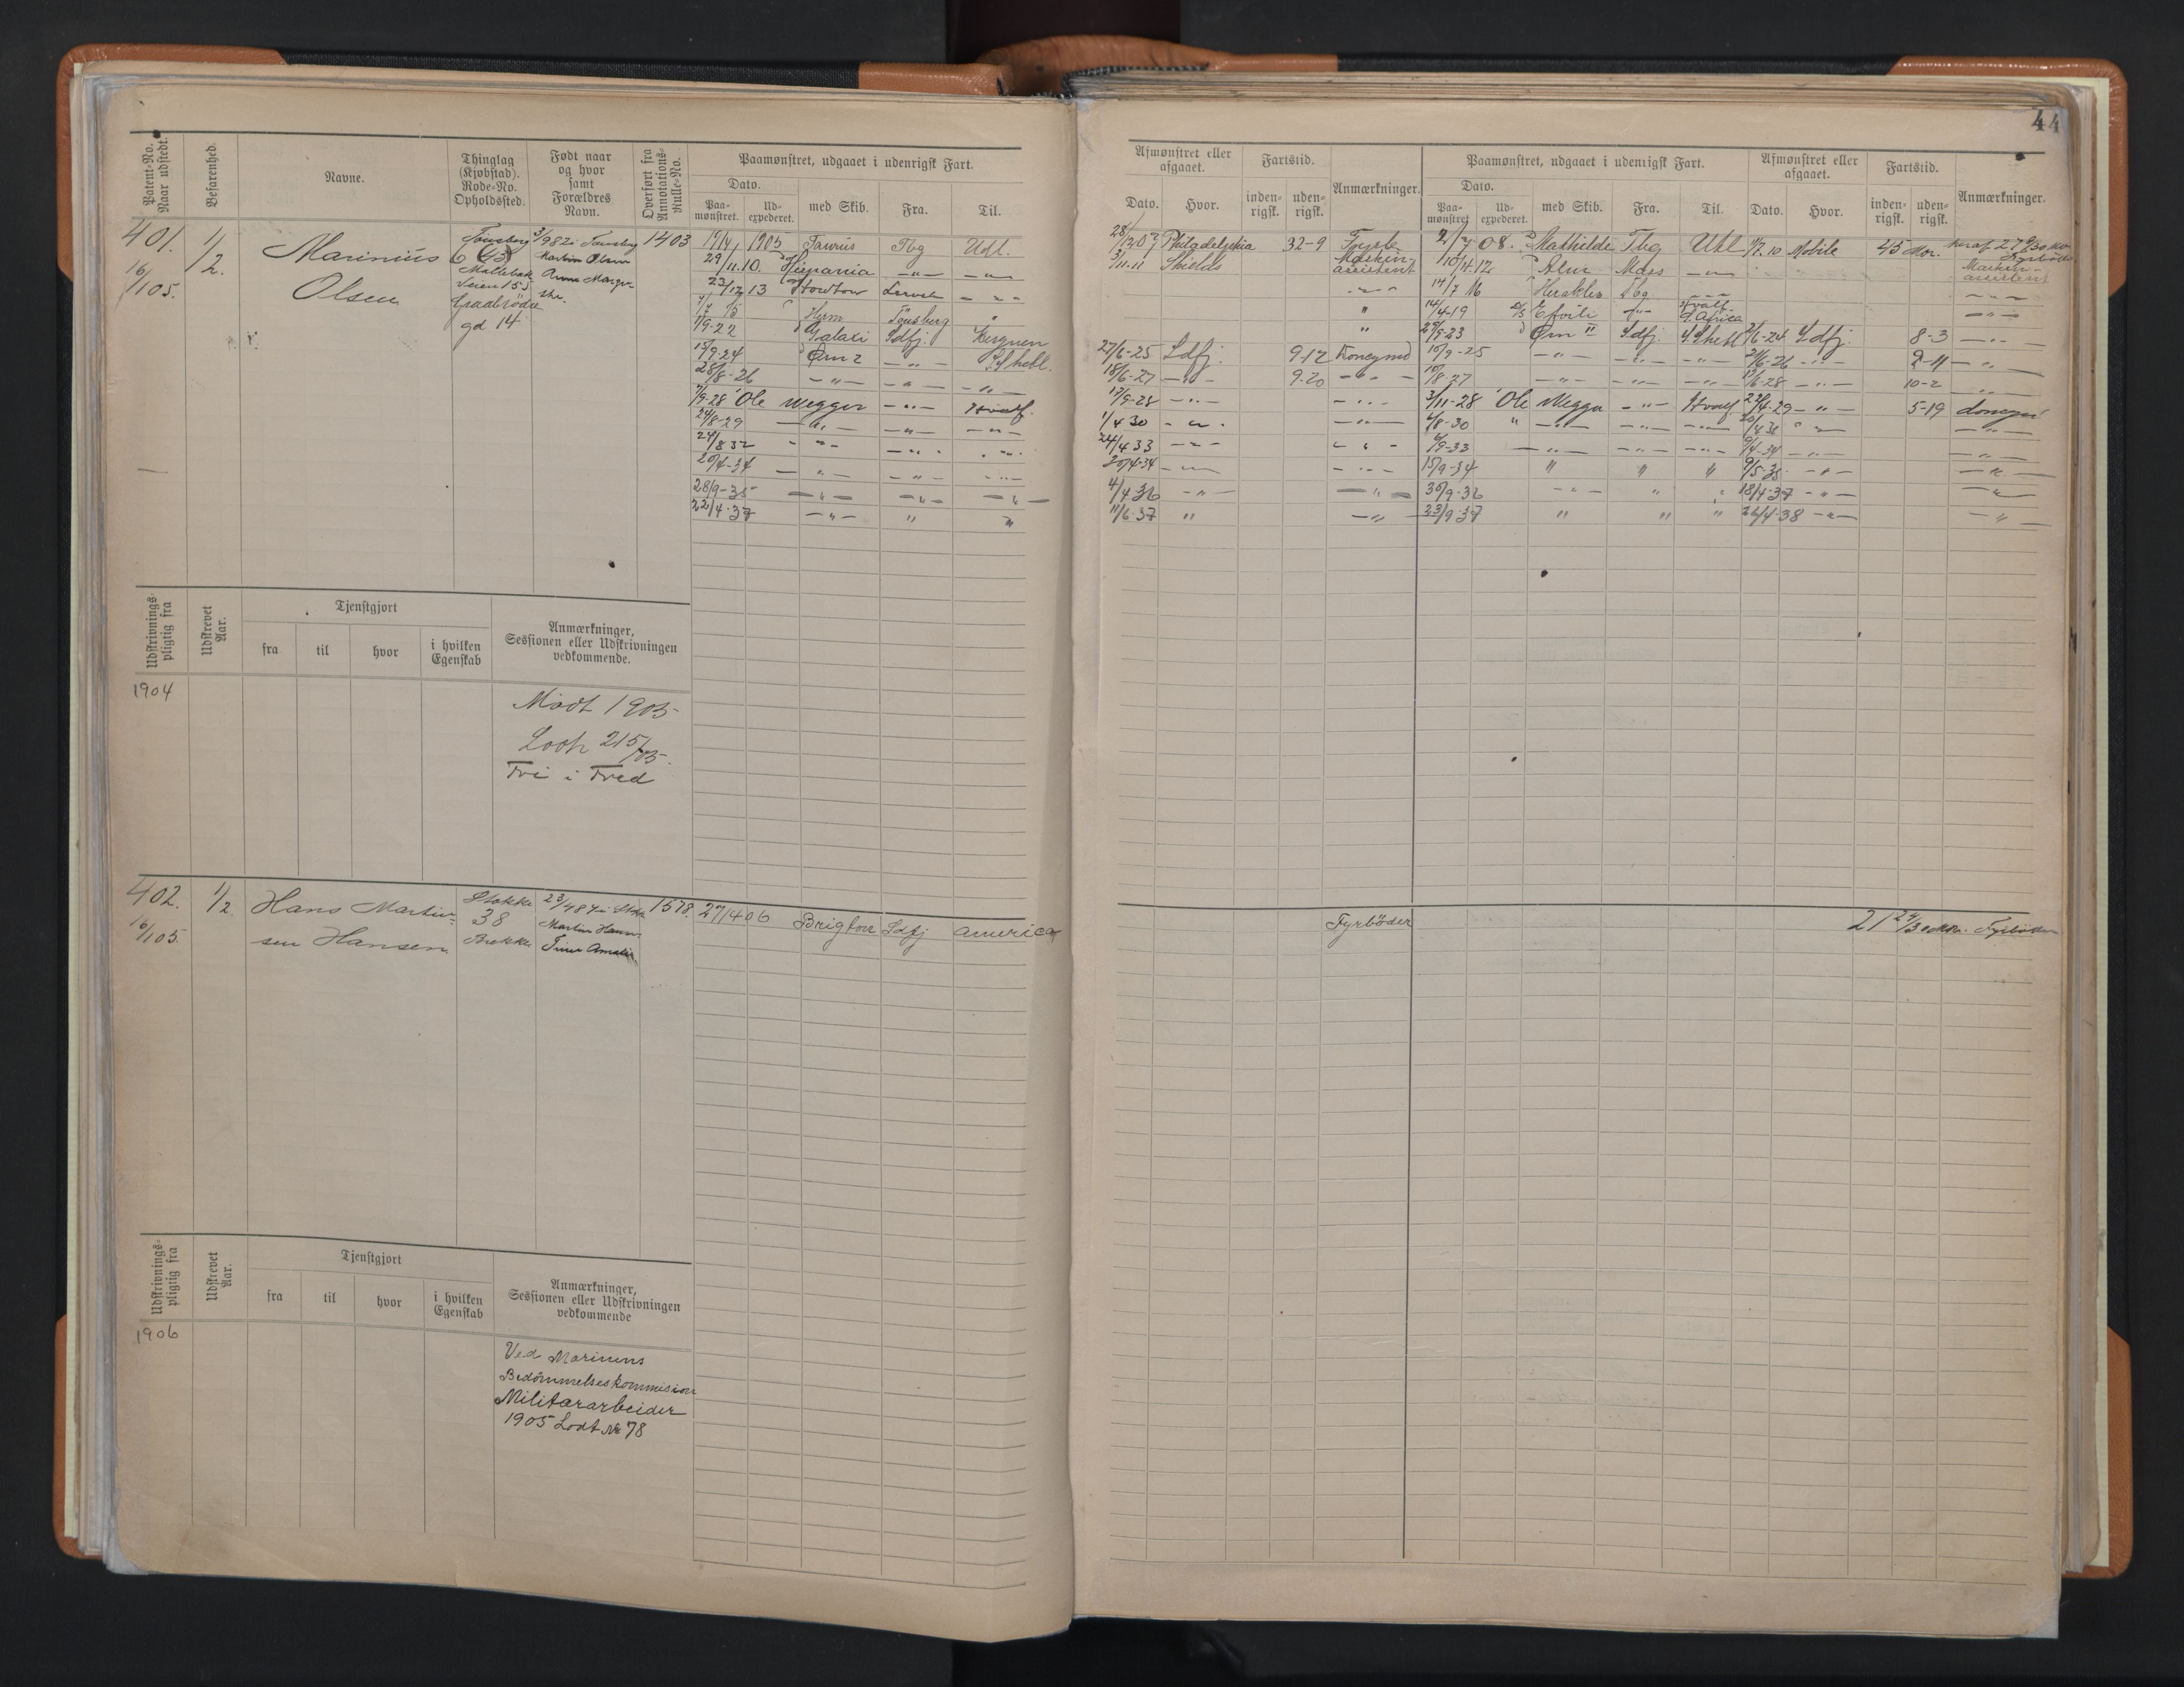 44
Patent-No. Naar udstedt.
Befarenhed.
Navne.
Thinglag (Kjøbstad). Rode-No. Opholdssted.
Født naar og hvor samt Forældres Navn.
Overført fra Annotations-Rulle-No.
Paamønstret, udgaaet i udenrigsk Fart.
Dato.
Paa-mønstret. Ud-expederet. med Skib. Fra. Til.
Afmønstret eller afgaaet.
Dato. Hvor.
Fartstid.
inden-rigsk. uden-rigsk.
Anmærkninger.
Paamønstret, udgaaet i udenrigsk Fart.
Dato.
Paa-mønstret Ud-expederet. med Skib. Fra. Til.
Afmønstret eller afgaaet.
Dato. Hvor.
Fartstid.
inden-rigsk. uden-rigsk.
Anmærkninger.
401.
16/105.
1/2.
Marinius
Olsen
Tønsberg
6 63
Møllebak
Veien 155
Graabrødre
gd 14
3/9 82 i Tønsberg
Martin Olsen
Anne Margre
the.
1403
19/4 1905 Taurus Tbg Udl.
29/11.10. Hispania -"- -"-
23/12 13 Howtow Larvik -"-
7/7 15 Herm Tønsberg "
1/9-22 Galaxi Sdfj. Kerguen
15/9.24 Ørn 2 -"- S. Shetl.
28/8-26 -"- -"- -"-
7/9-28 Ole Wegger -"- Hvalf.
24/8-29 -"- -"- -"-
24/8 32 -"- -"- -"-
20/4-34 -"- -"- -"-
28/9-35 -"- -"- -"-
22/4-37 -"- " "
28/12 07 Philadelphia 32-9 Fyrbø
3/11.11 Shields Maskin-assistent
-"-
"
"
27/6-25 Sdfj. 9-12 Donkeymd
18/6-27 -"- 9-20 -"-
17/9-28 -"- -"-
1/4 30 -"- -"-
24/4 33 -"- -"-
20/4-34 -"- -"-
4/4 36 -"- -"-
11/6-37 " -"-
2/7 08. Mathilde Tbg Utl 1/7.10 Mobile 45 Mdr. heraf 27 9/30 Mdr Fyrbøder
10/4.12 Alur Moss -"- Maskin-assistent
14/7 16 Herakles Tbg -"- -"-
14/4-19 Efvile -"- Hvalf. S. Africa -"-
29/9-23 Ørn II Sdfj. S. Shetl 2/6-24 Sdfj. 8-3 -"-
10/9-25 -"- -"- -"- 21/6-26 -"- 9-11 -"-
18/8-27 -"- -"- -"- 13/6-28 -"- 10-2 "
3/11-28 Ole Wegger -"- Hvalf 22/4-29 -"- 5-19 donkeym
4/8-30 " -"- -"- -"- -"-
6/9-33 -"- -"- -"- 9/4-34 -"- -"-
15/9-34 " " " 9/5-35 -"- -"-
30/9-36 -"- " " 18/4-37 -"- -"-
23/9-37 " " " 26/4-38 -"- -"-
Udskrivnings-pligtig fra
Udskrevet Aar.
Tjenstgjort
fra til hvor i hvilken Egenskab
Anmærkninger, Sessionen eller Udskrivningen vedkommende.
1904
Mødt 1905
Lodtr 215/05.
Fri i Fred
402.
16/105.
1/2.
Hans Martin-
sen Hansen
Stokke
38
Brekke
23/4 84 i Stokke
Martin Hansen
1578.
27/4 06 Brigton Sdfj America
Fyrbøder
21 24/30 Mdr. Fyrbøder
Udskrivnings-pligtig fra
Udskrevet Aar.
Tjenstgjort
fra til hvor i hvilken Egenskab
Anmærkninger, Sessionen eller Udskrivningen vedkommende
1906
Ved Marinens
Bedømmelseskommision
Militærarbeider
1905 Lodt № 78